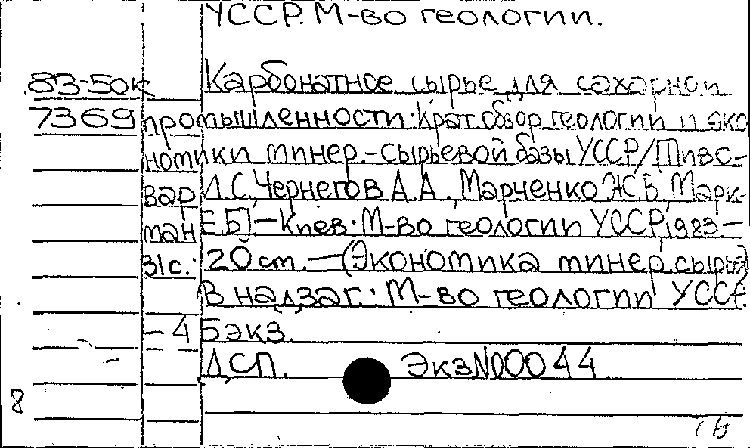 УССР. М-во геологии.
83-50к Карбонатное сырье для сахарной
7369 промышленности: Крат. обзор геологии и эко
номики минер.-сырьевой базы УССР/Пивс-
вар Л.С., Чернегов А.А., Марченко Ж.Б., Марк-
ман Е.Б.] — Киев: М-во геологии УССР, 1983 —
31с.; 20 см. — (Экономика минер. сырья)
В надзаг.: М-во геологии УССР
— 45 экз.
ДСП. Экз N 00044
8